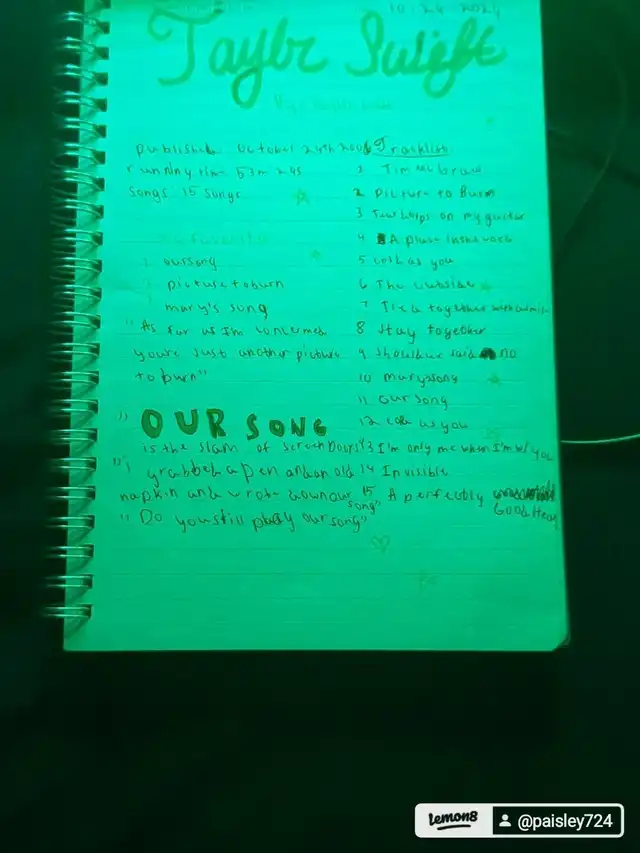 10-24-2024
Taylor Swift
published october 24th 2006
running time 53m 29s
songs: 15 songs
my favorites
1. oursong
picture to burn
mary's song
"As far as I'm concerned
you're Just another picture
to burn"
"OUR SONG
is the slam of screen Doors"
"I grabbed a pen and an old
napkin and wrote down our
song"
"Do you still play our song"
Tracklist
1 Tim McGraw
2 Picture to Burn
3 Teardrops on my guitar
4 A place in this world
5 cold as you
6 The outside
7 Tied together with a smile
8 Stay together
9 Should've said no
10 marys song
11 Our song
12 cold as you
13 I'm only me when I'm w/ you
14 Invisible
15 A perfectly
Good Heart
lemon8 @paisley724